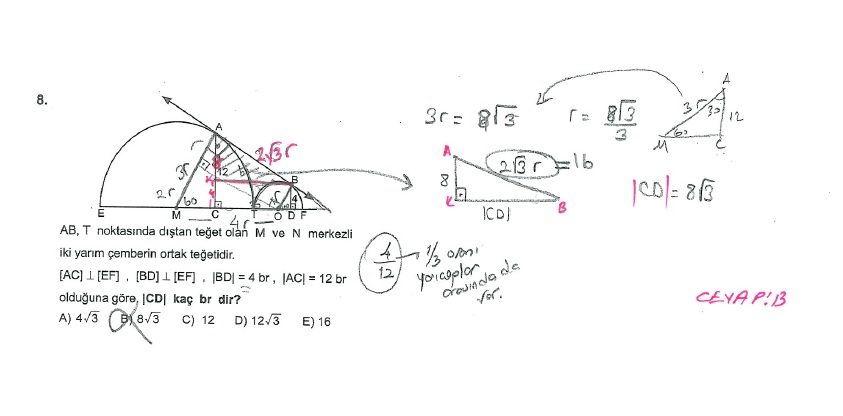 8.
A
B
E
M
C
T
O
D
F
r
3r
2r
60
12
4
2√3r
4r
3r = 8√3
r = 8√3/3
A
3r
30
12
60
M
C
A
8
K
B
2√3 r = 16
|CD|
|CD| = 8√3
AB, T noktasında dıştan teğet olan M ve N merkezli
iki yarım çemberin ortak teğetidir.
[AC] ⊥ [EF] , [BD] ⊥ [EF] , |BD| = 4 br , |AC| = 12 br
olduğuna göre, |CD| kaç br dir?
A) 4√3 B) 8√3 C) 12 D) 12√3 E) 16
4/12
1/3 oranı
yarıçaplar
arasında da
var.
CEVAP: B